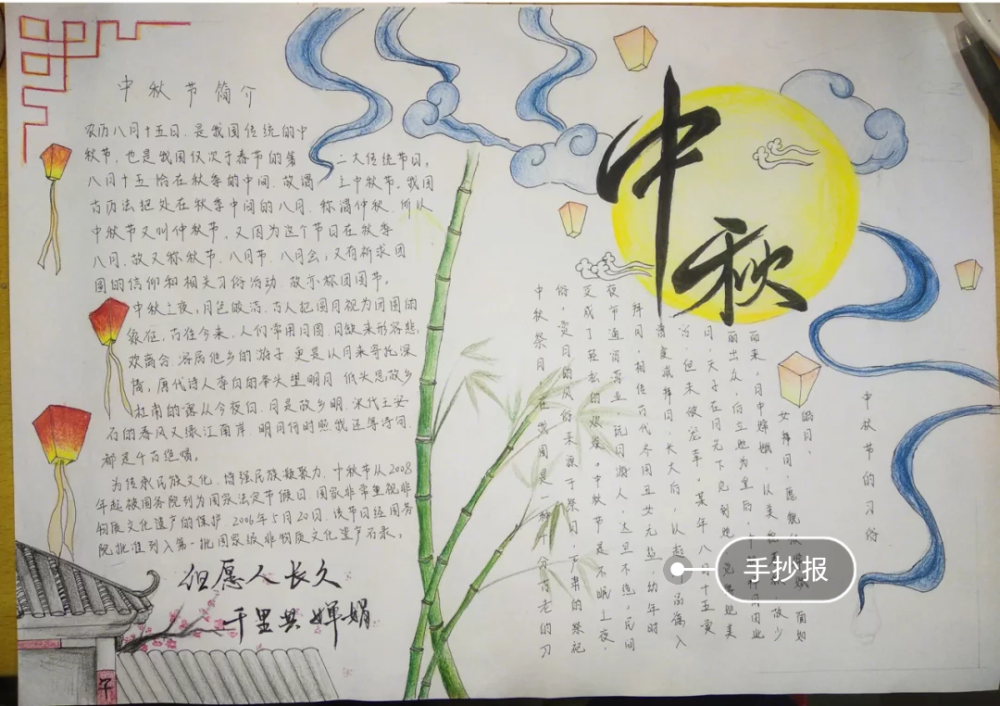 中秋
中秋节简介
农历八月十五日.是我国传统的中
秋节,也是我国仅次于春节的第 二大传统节日。
八月十五恰在秋季的中间.故谓 之中秋节.我国
古历法把处在秋季中间的八月.称谓仲秋.所以
中秋节又叫仲秋节。又因为这个节日在秋季
八月.故又称秋节、八月节、八月会;又有祈求团
圆的信仰和相关习俗活动 故亦称团圆节。
中秋之夜,月色皎洁.古人把圆月视为团圆的
象征.古往今来.人们常用月圆.月缺来形容悲
欢离合.客居他乡的游子 更是以月来寄托深
情。唐代诗人李白的举头望明月 低头思故乡
杜甫的露从今夜白.月是故乡明.宋代王安
石的春风又绿江南岸.明月何时照我还等诗句
都是千古绝唱。
为传承民族文化.增强民族凝聚力.中秋节从2008
年起被国务院列为国家法定节假日.国家非常重视非
物质文化遗产的保护.2006年5月20日.该节日经国务
院批准列入第一批国家级非物质文化遗产名录。
但愿人长久
千里共婵娟
午
中秋节的习俗
中秋祭月.在我国是一种十分古老的习
俗。赏月的风俗来源于祭月.严肃的祭祀
变成了轻松的欢娱。中秋节是不眠之夜.
夜市通宵营业 玩月游人,达旦不绝。民间
拜月.相传古代齐国丑女无盐 幼年时
曾虔诚拜月.长大后,以超品德入
宫.但未被宠幸.某年八月十五赏
月,天子在月光下见到她 觉得她美
丽出众,后立她为皇后,中秋拜月由此
而来。月中嫦娥,以美貌著称,故少
女拜月,愿貌似嫦娥 面如
皓月.
手抄报